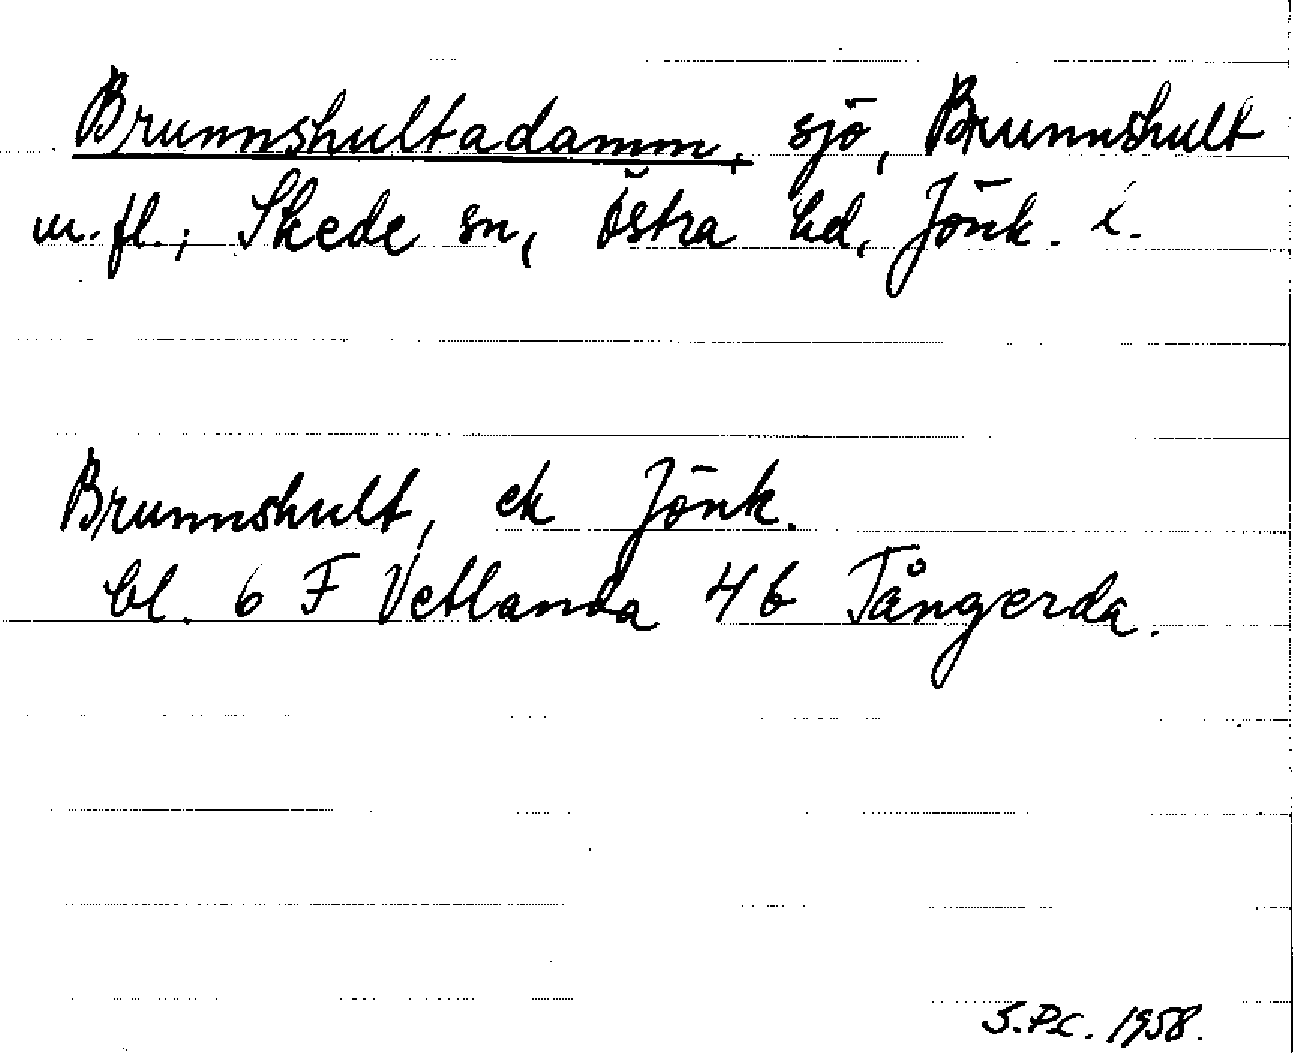 Brunnshultadamm, sjö, Brunnshult
m.fl., Skede sn, Östra hd, Jönk. l.
Brunnshult, ek Jönk.
bl. 6 F Vetlanda 4 b Tångerda.
S.P.C. 1958.